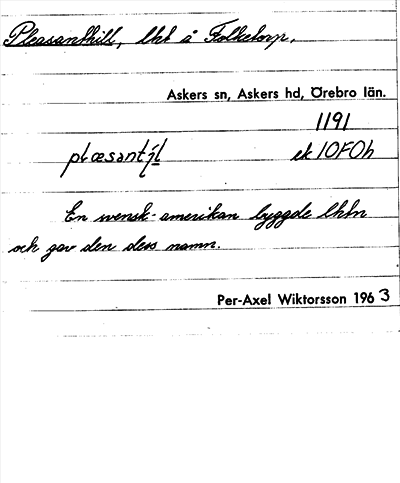 Pleasanthill, lht å Folketorp.
Askers sn, Askers hd, Örebro län.
1191
plæsantịl ek 10F0h
En svensk-amerikan byggde lhtn
och gav den dess namn.
Per-Axel Wiktorsson 1963